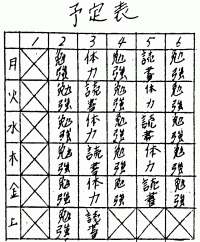 予定表
1 2 3 4 5 6
月 勉強 体力 勉強 読書 勉強
火 勉強 読書 勉強 体力 勉強
水 勉強 体力 勉強 読書 勉強
木 勉強 読書 勉強 体力 勉強
金 勉強 体力 勉強 読書 勉強
土 勉強 読書